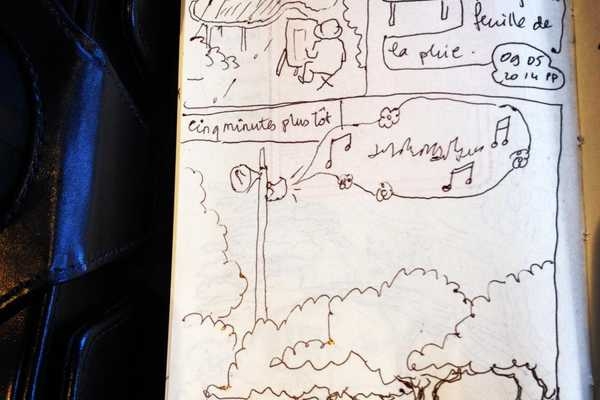 feuille de
la pluie.
09 05
2014 PP
cinq minutes plus tôt